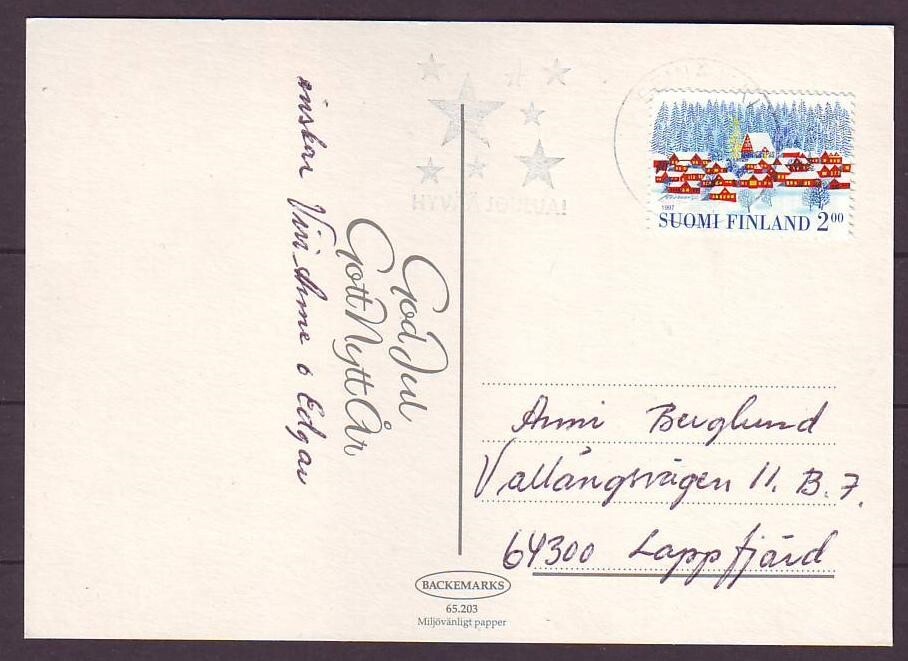 God Jul
Gott Nytt År
önskar Vivi-Anne o Edgar
HYVÄÄ JOULUA!
1997
SUOMI FINLAND 2.00
Anni Berglund
Vallångsvägen 11. B. 7.
64300 Lappfjärd
BACKEMARKS
65.203
Miljövänligt papper